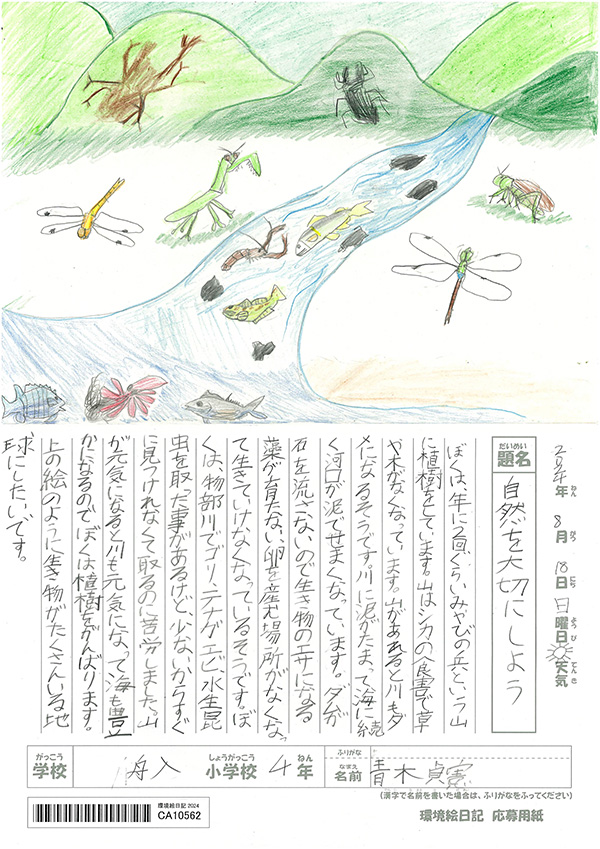 2024年 8月 18日 日曜日 天気
ねん がつ にち ようび てんき
だいめい
題名
自然を大切にしよう
ぼくは、年に2回くらいみやびの丘という山
に植樹をしています。山はシカの食害で草
や木がなくなっています。山があれると川もダ
メになるそうです。川に泥がたまって海に続
く河口が泥でせまくなっています。ダムが
石を流さないので生き物のエサになる
藻が育たない、卵を産む場所がなくなっ
て生きていけなくなっているそうです。ぼ
くは、物部川でゴリ、テナガエビ、水生昆
虫を取った事があるけど、少ないからすぐ
に見つけれなくて取るのに苦労しました。山
が元気になると川も元気になって海も豊
かになるのでぼくは植樹をがんばります。
上の絵のように生き物がたくさんいる地
球にしたいです。
がっこう しょうがっこう ねん ふりがな
学校 舟入 小学校 4年 なまえ 名前 青木 貞憲
(漢字で名前を書いた場合は、ふりがなをふってください)
環境絵日記 2024
CA10562
環境絵日記 応募用紙